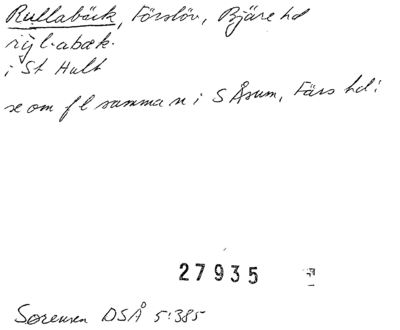 Rullabäck, Förslöv, Bjäre hd
rýl·abæk.
i St Hult
se om fl samma n i S Åsum, Färs hd:
27935
Sørensen DSÅ 5:385